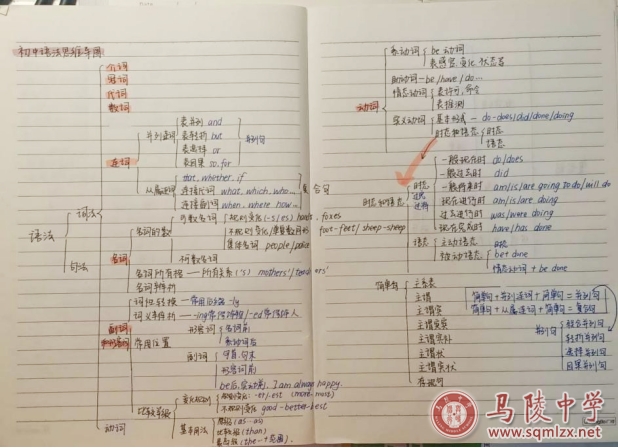 初中语法思维导图
介词
冠词
代词
数词
连词
并列连词
表并列 and
表转折 but
表选择 or
表因果 so, for
并列句
从属连词
that, whether, if
连接代词 what, which, who...
连接副词 when, where, how...
复合句
语法
词法
句法
名词
名词的数
可数名词
规则变化(-s/es)
foxes
不规则变化
foot-feet/sheep-sheep
集体名词 people/police
不可数名词
名词所有格
所有关系('s) mothers'/teachers'
副词
形容词
词性转换
-ly
常用位置
形容词
名词前
系动词后
副词
句首、句末
形容词前
be后,实动前, I am always happy.
比较等级
规则变化 -er/-est (more, most)
不规则变化 good-better-best
基本用法
原级(as-as)
比较级(than)
最高级(the-+范围)
动词
动词
系动词
be动词
助动词-be/have/do...
情态动词
表推测
实义动词
基本形式-do-does/did/done/doing
时态和语态
时态
语态
时态和语态
时态
一般现在时 do/does
一般过去时 did
一般将来时 am/is/are going to do/will do
现在进行时 am/is/are doing
过去进行时 was/were doing
现在完成时 have/has done
语态
主动语态
被动语态
be+done
情态动词+be done
简单句
主系表
主谓
主谓宾
主谓宾宾
主谓宾补
主谓状
主谓宾状
存现句
简单句+并列连词+简单句=并列句
简单句+从属连词+简单句=复合句
并列句
联合并列句
转折并列句
选择并列句
因果并列句
马陵中学
www.sqmlzx.net